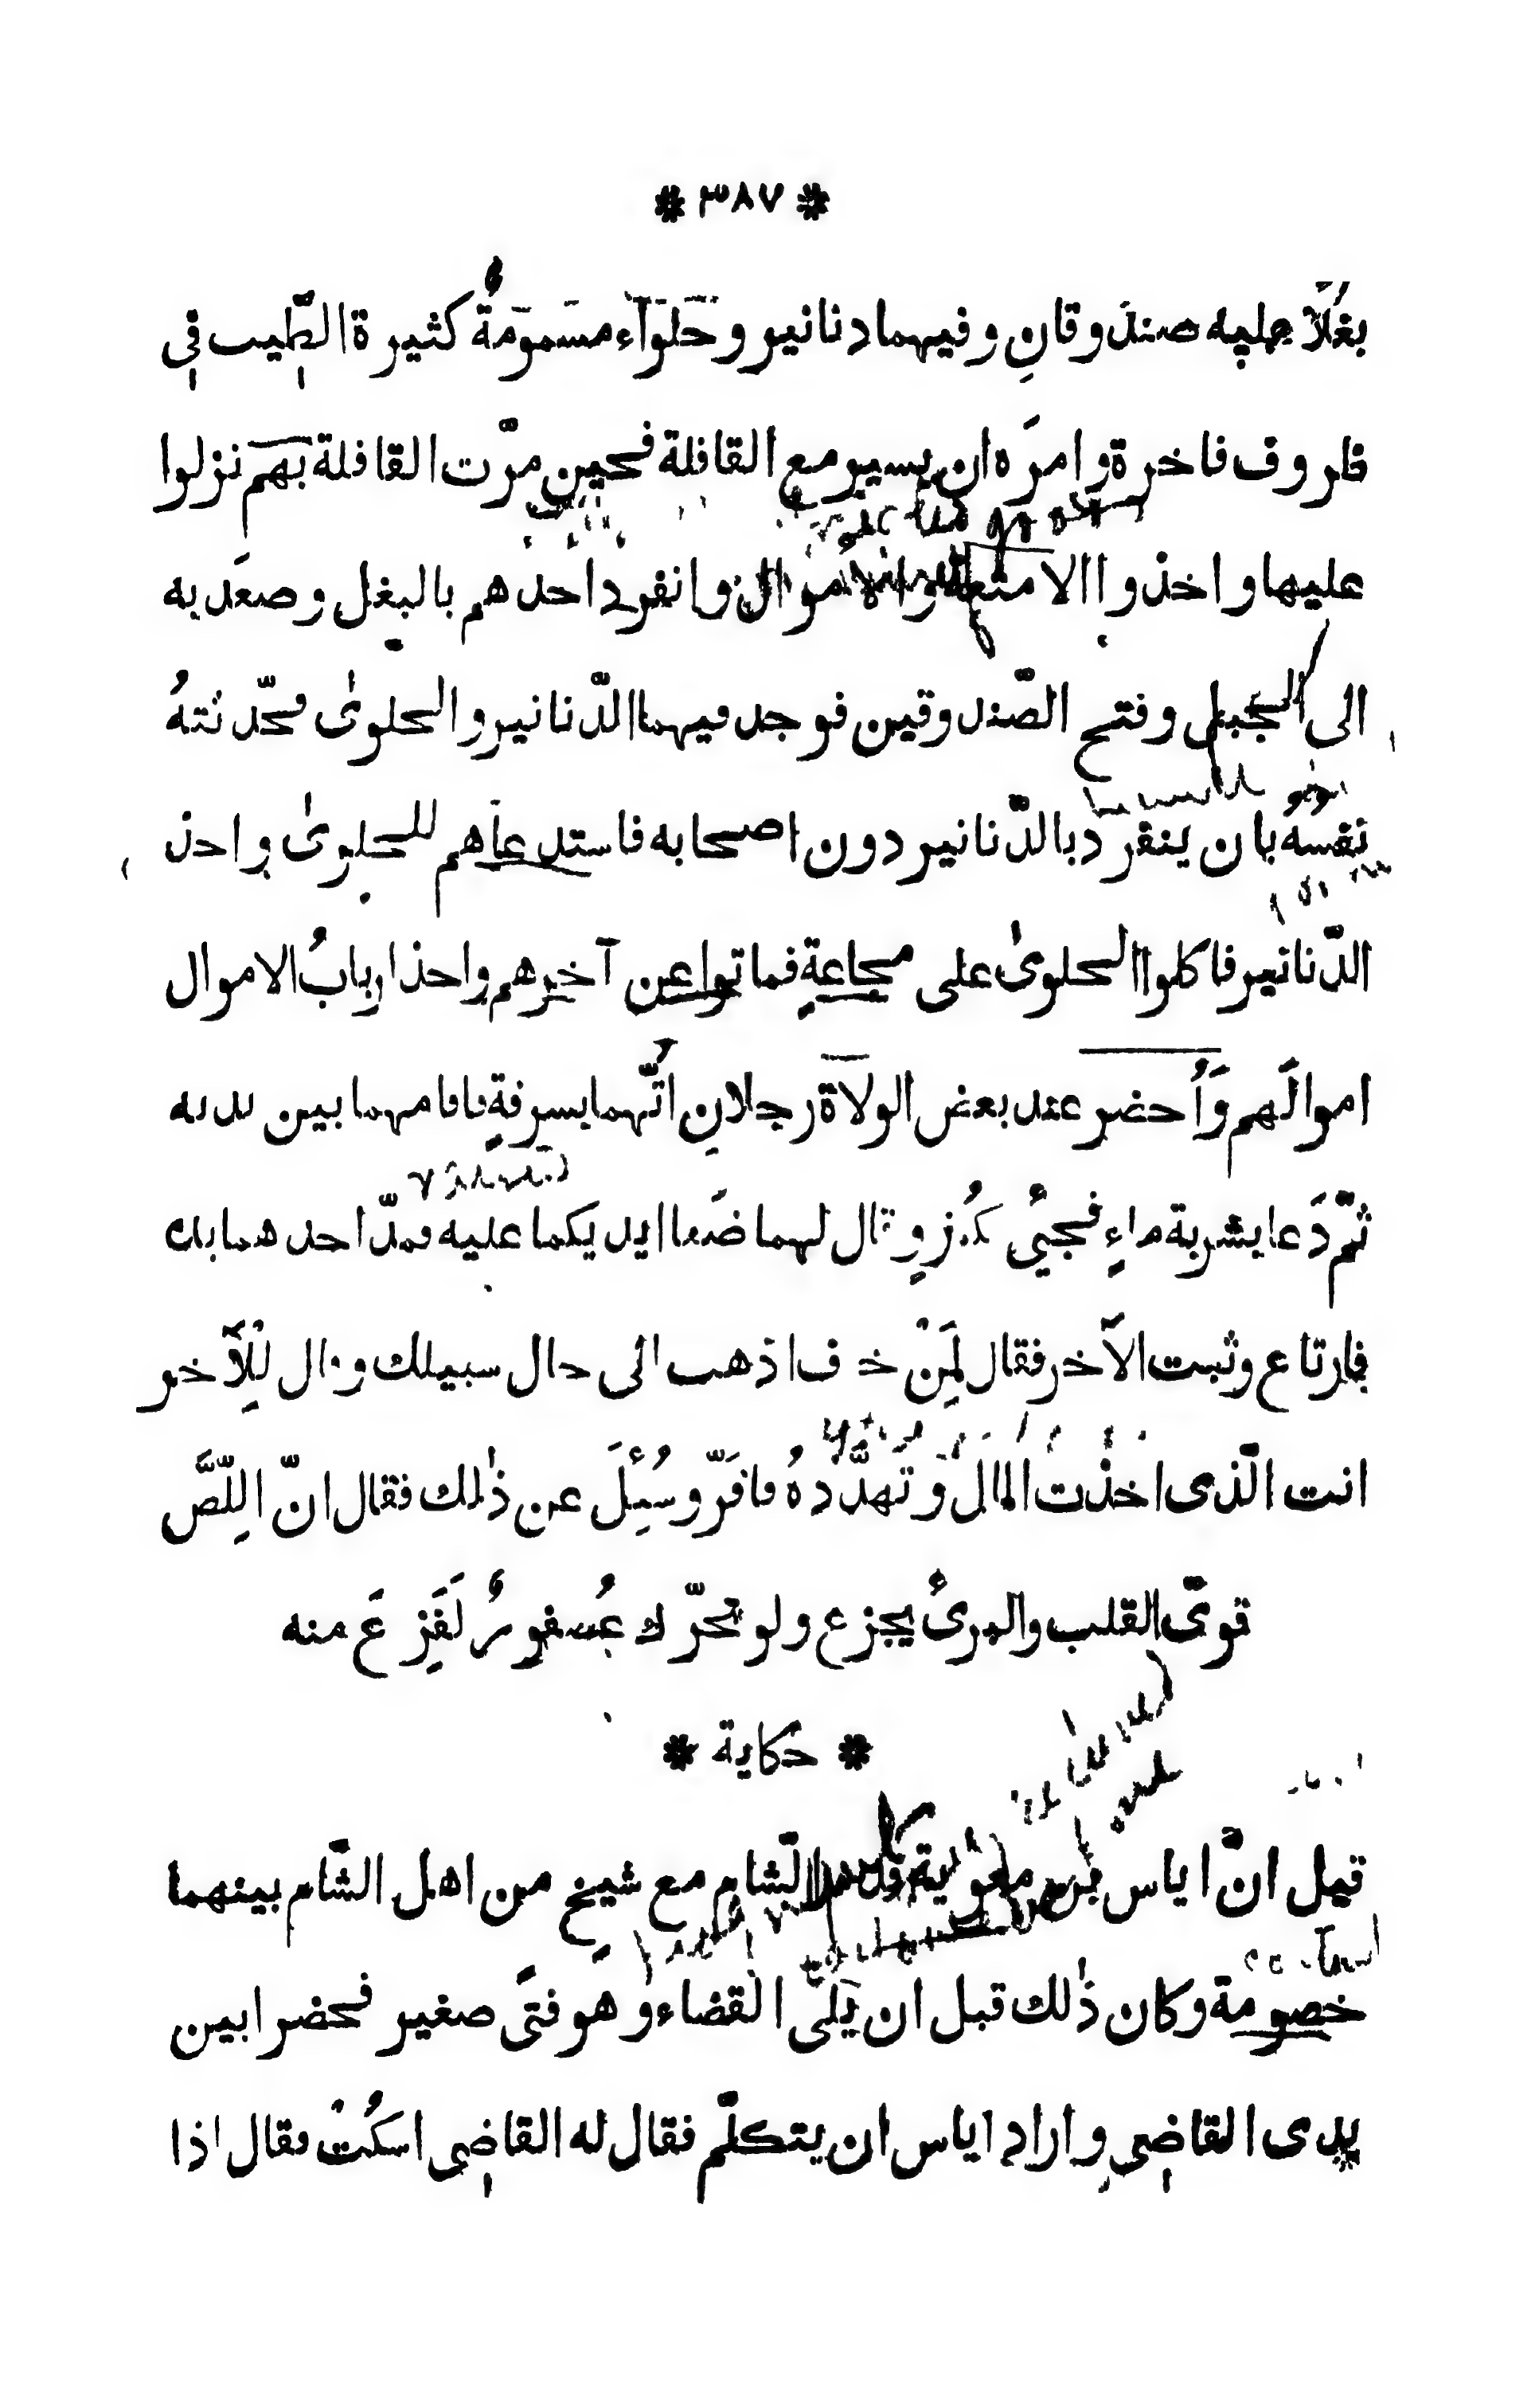 * ٣٨٧ *
بغلًا عليه صندوقانِ وفيهما دنانير وحَلْوَآء مسمومَةٌ كثيرة الطّيب في
ظروف فاخرة وامرَه ان يسير مع القافلة فحين مرّت القافلة بَهم نزلوا
عليها واخذوا الامتعة والاموال وانفرد احدهم بالبغل وصعَد به
الى الجبل وفتح الصّندوقين فوجد فيهما الدّنانير والحلوىٰ فحّدثتهُ
نفسُهُ بان ينفرد بالدّنانير دون اصحابه فاستدعاهم للحلوىٰ واخذ
الدّنانير فاكلوا الحلوىٰ على مجاعةٍ فماتوا عن آخرهم واخذ اربابُ الاموال
اموالَهم وَأُحضر عند بعض الولاة رجلانِ اتُّهما بسرقةٍ فاقامهما بين يديه
ثمّ دَعا بشربة ماءٍ فجيْءُ بكُوزٍ وقال لهما ضَعا ايديكما عليه فمدّ احدهما يده
فارتاع وثبت الآخر فقال لِمَنْ خاف اذهب الى حال سبيلك وقال لْلِآخر
انت الّذى اخذْتَ المالَ وَ تَهدَّدهُ فاقَرّ وسُئِلَ عن ذٰلك فقال انّ اللِّصَّ
قوىّ القلب والبرىُٔ يجزع ولو تحرّك عُصفورٌ لَفَزِعَ منه
* حكاية *
قيل انّ اياس بن معٰوية قدم الشّام مع شيخٍ من اهل الشّام بينهما
خصومة وكان ذٰلك قبل ان يَلَى القضاء وهو فتًى صغير فحضرا بين
يدى القاضِى واراد اياس ان يتكلّم فقال له القاضِى اسكُتْ فقال اذا